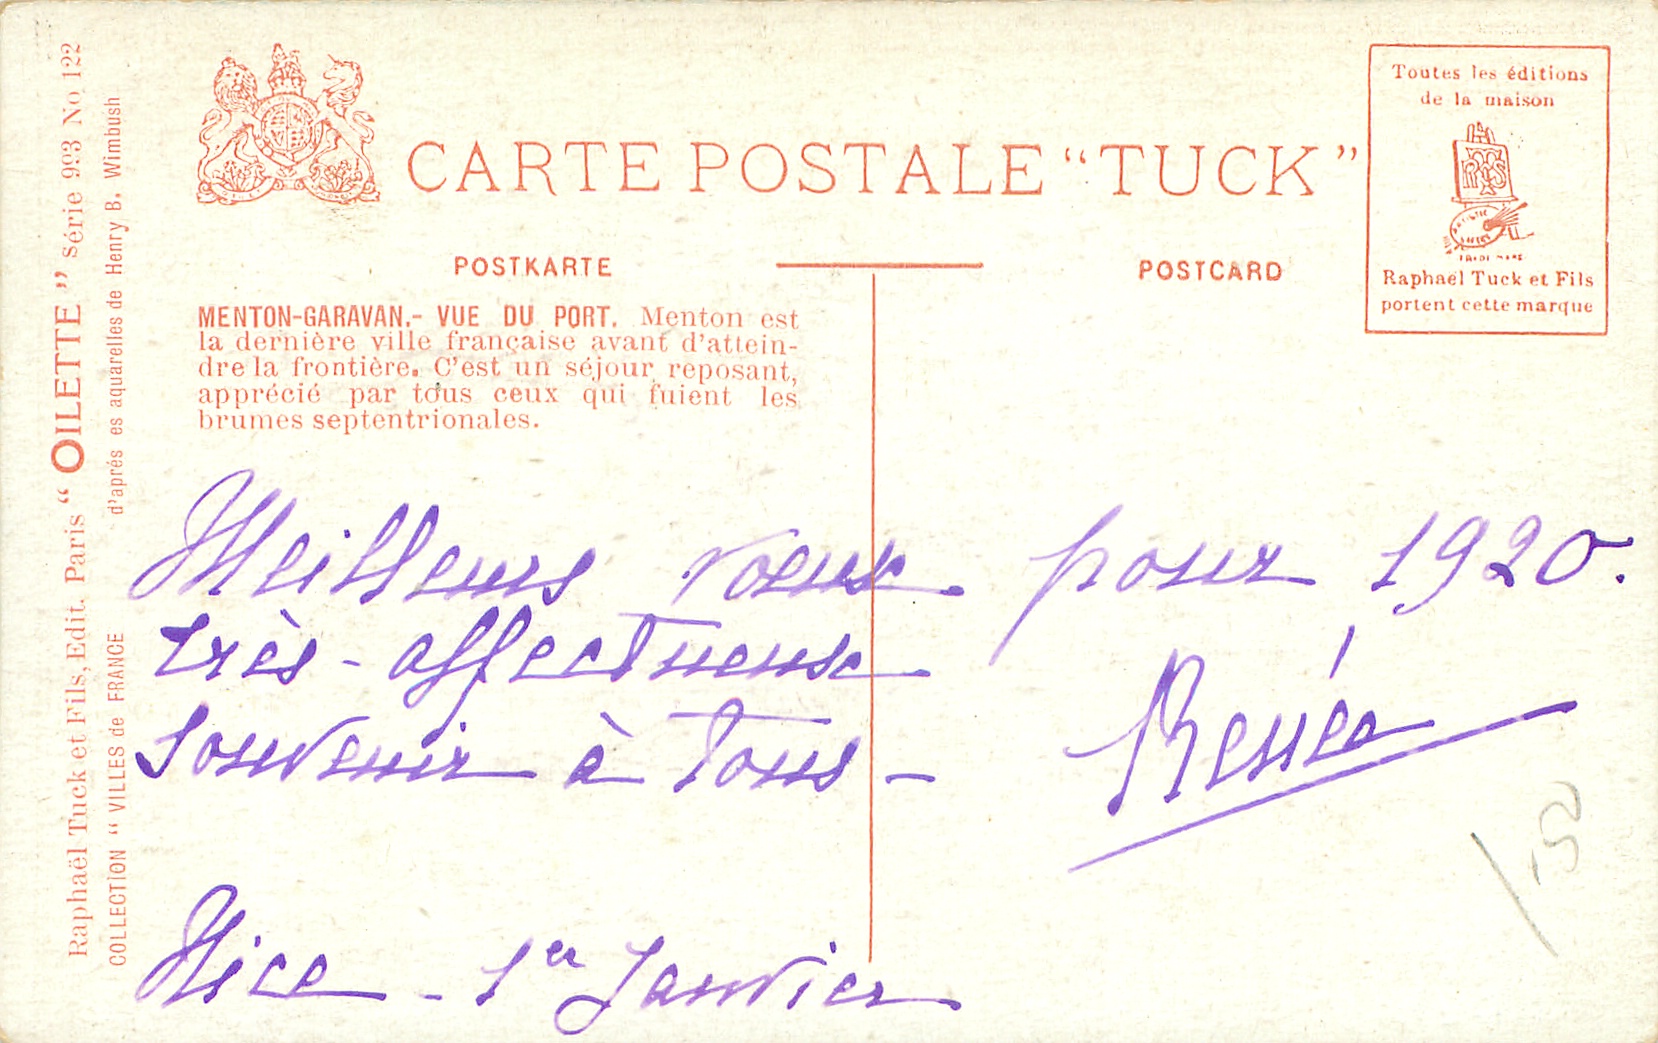 CARTE POSTALE “TUCK”
POSTKARTE
POSTCARD
Toutes les éditions
de la maison
Raphael Tuck et Fils
portent cette marque
MENTON-GARAVAN.- VUE DU PORT. Menton est
la dernière ville française avant d'attein-
dre la frontière. C'est un séjour reposant,
apprécié par tous ceux qui fuient les
brumes septentrionales.
Raphaël Tuck et Fils, Edit. Paris “ OILETTE ” Série 993 No 122
COLLECTION “ VILLES de FRANCE d'aprés es aquarelles de Henry B. Wimbush
Meilleurs vœux pour 1920.
très-affectueux
souvenir à tous -
Renée
Nice - 1er Janvier